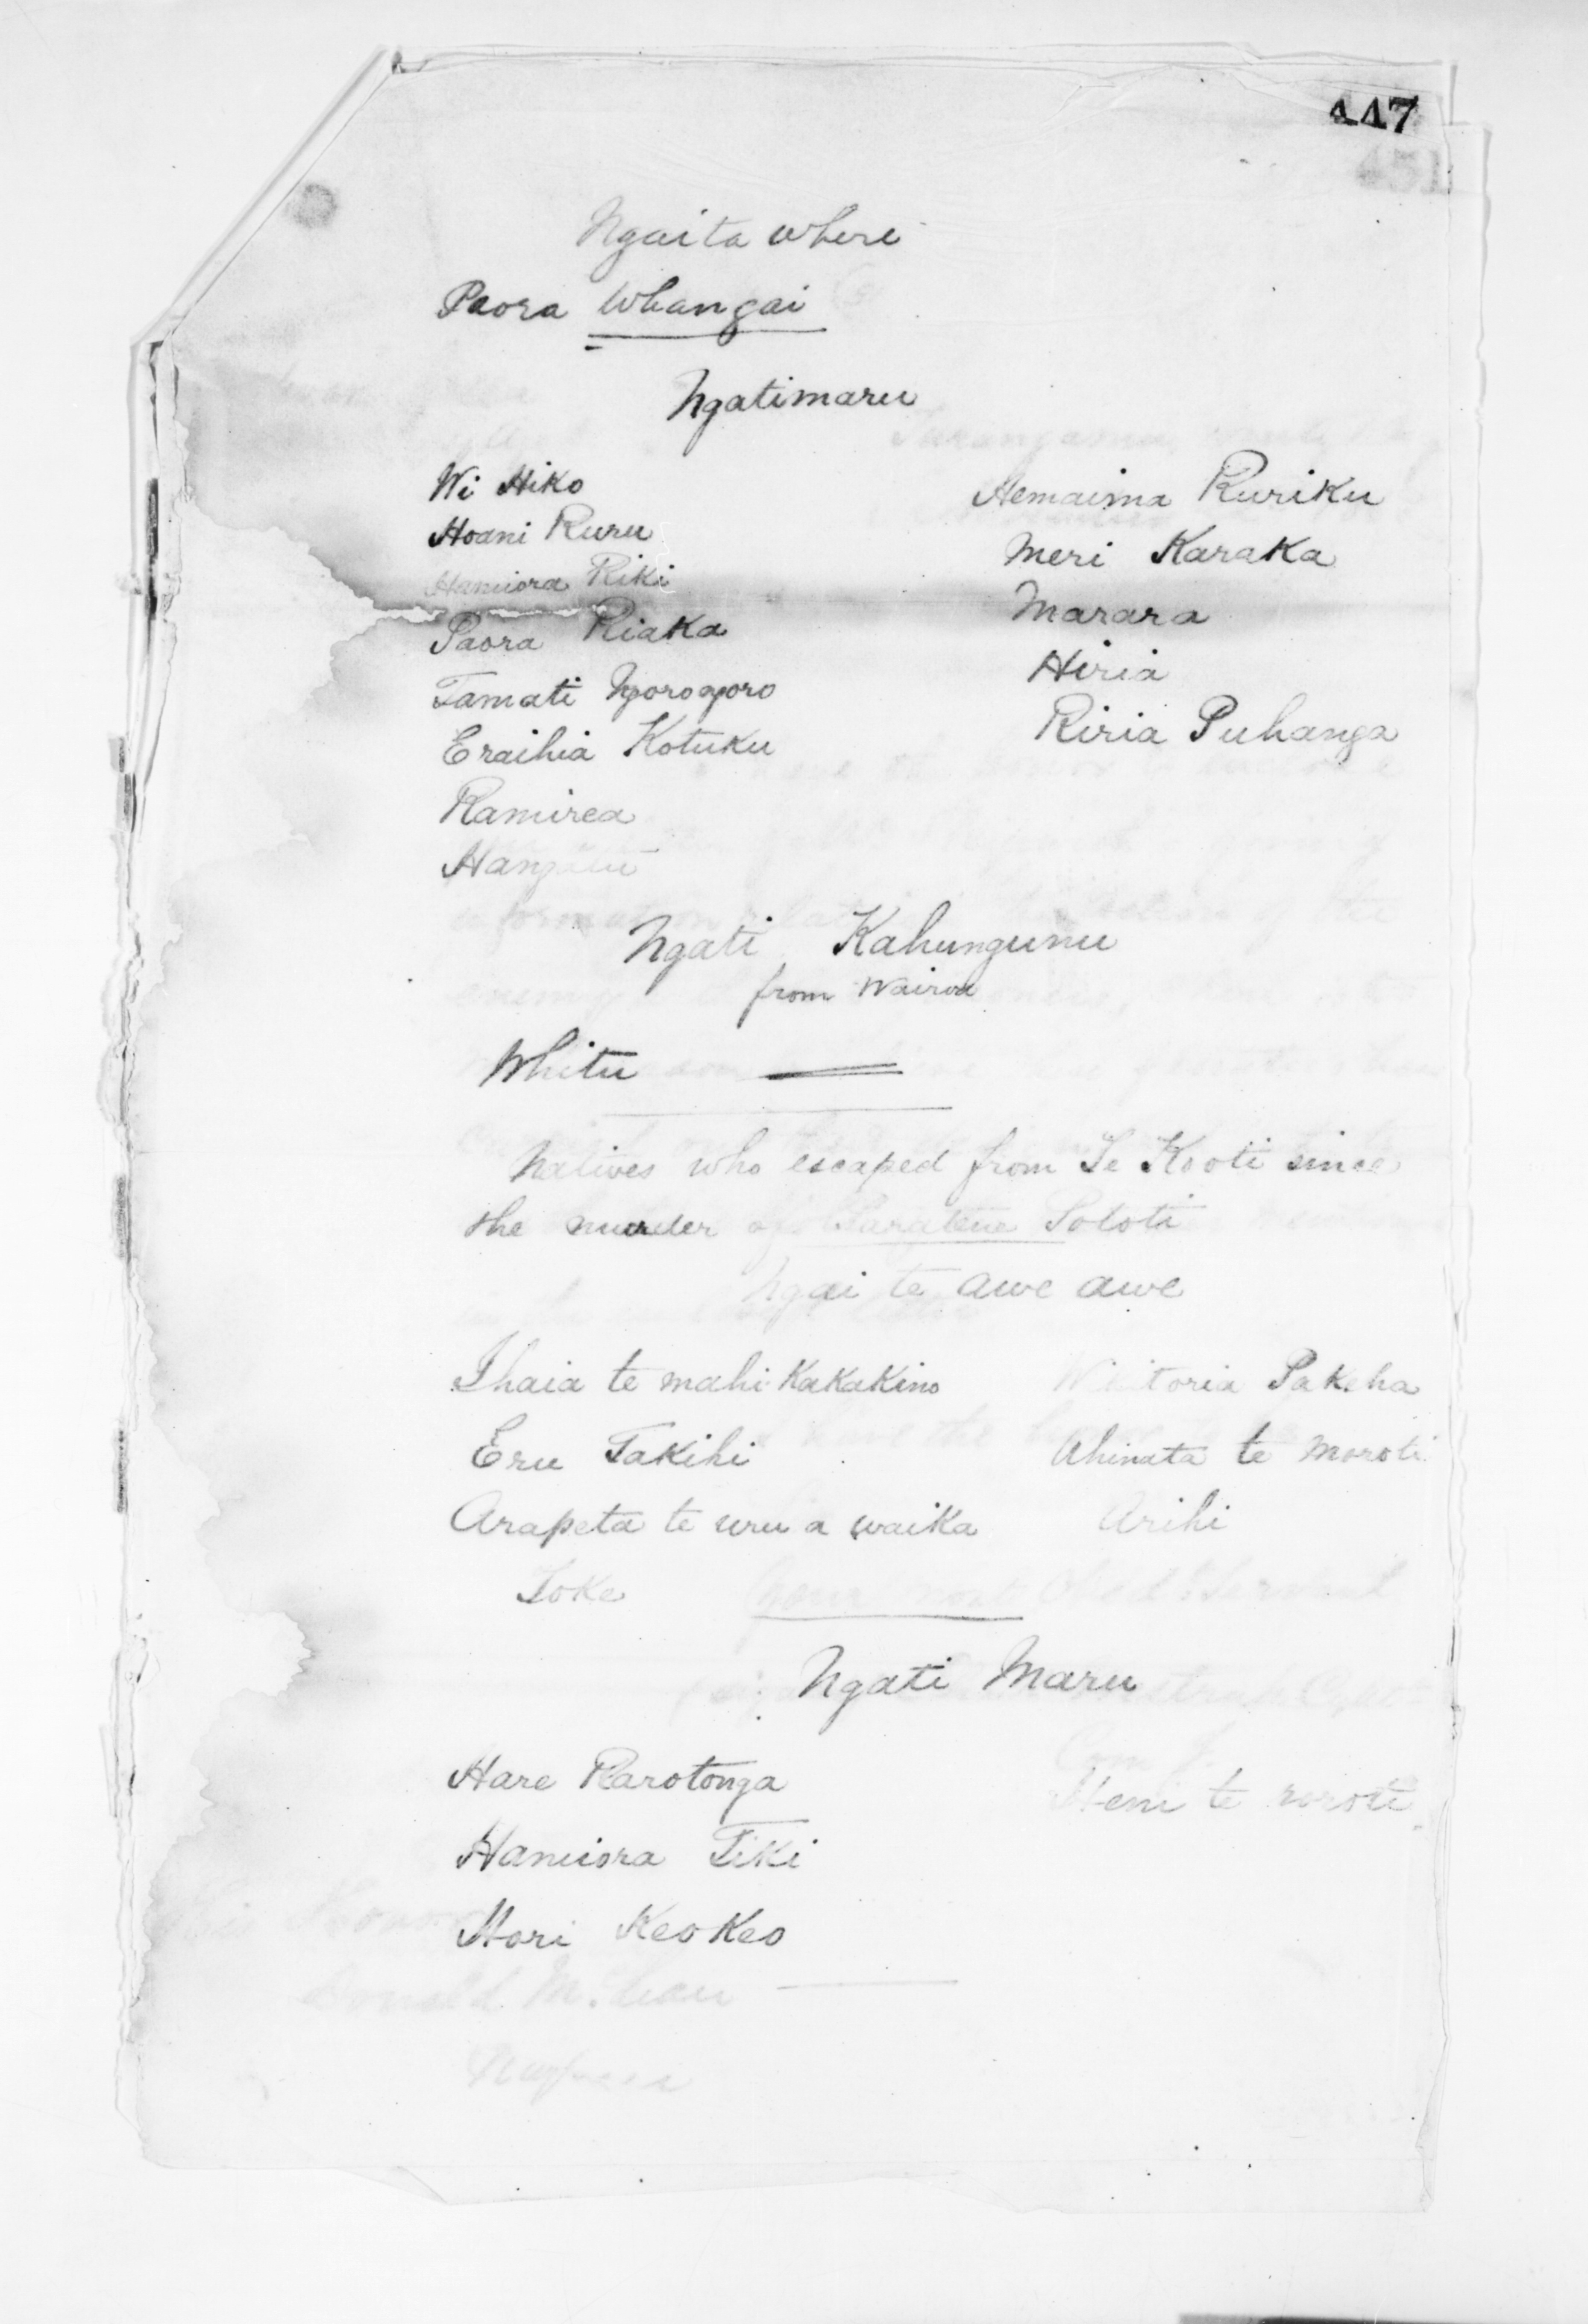 447
451
Ngaita where
Paora Whangai
Ngatimaru
Wi Hiko
Hemaima Ruriku
Hoani Ruru
Meri Karaka
Hamiora Riki
Marara
Paora Riaka
Hiria
Tamati Ngorongoro
Riria Puhanga
Eraihia Kotuku
Ramirea
Ngati Kahungunu
from Wairoa
Whitu
Natives who escaped from Te Kooti since
the murder of Paratene Pototi
Ngai te Awe Awe
Ihaia te mahi Kakakino
Wikitoria Pakeha
Eru Takihi
Ahinata te Moroti
Arapeta te uru a waika
Arihi
Toke
Ngati Maru
Hare Rarotonga
Heni te
Hamiora Tiki
Hori Keokeo
Donald McLean